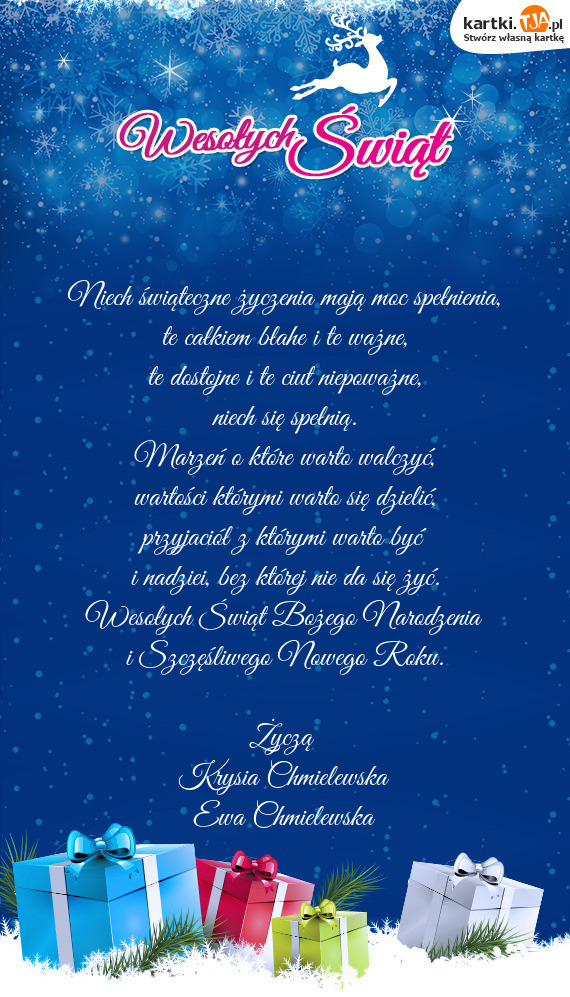 kartki.TJA.pl
Stwórz własną kartkę
Wesołych Świąt
Niech świąteczne życzenia mają moc spełnienia,
te całkiem błahe i te ważne,
te dostojne i te ciut niepoważne,
niech się spełnią.
Marzeń o które warto walczyć,
wartości którymi warto się dzielić,
przyjaciół z którymi warto być
i nadziei, bez której nie da się żyć.
Wesołych Świąt Bożego Narodzenia
i Szczęśliwego Nowego Roku.
Życzą
Krysia Chmielewska
Ewa Chmielewska